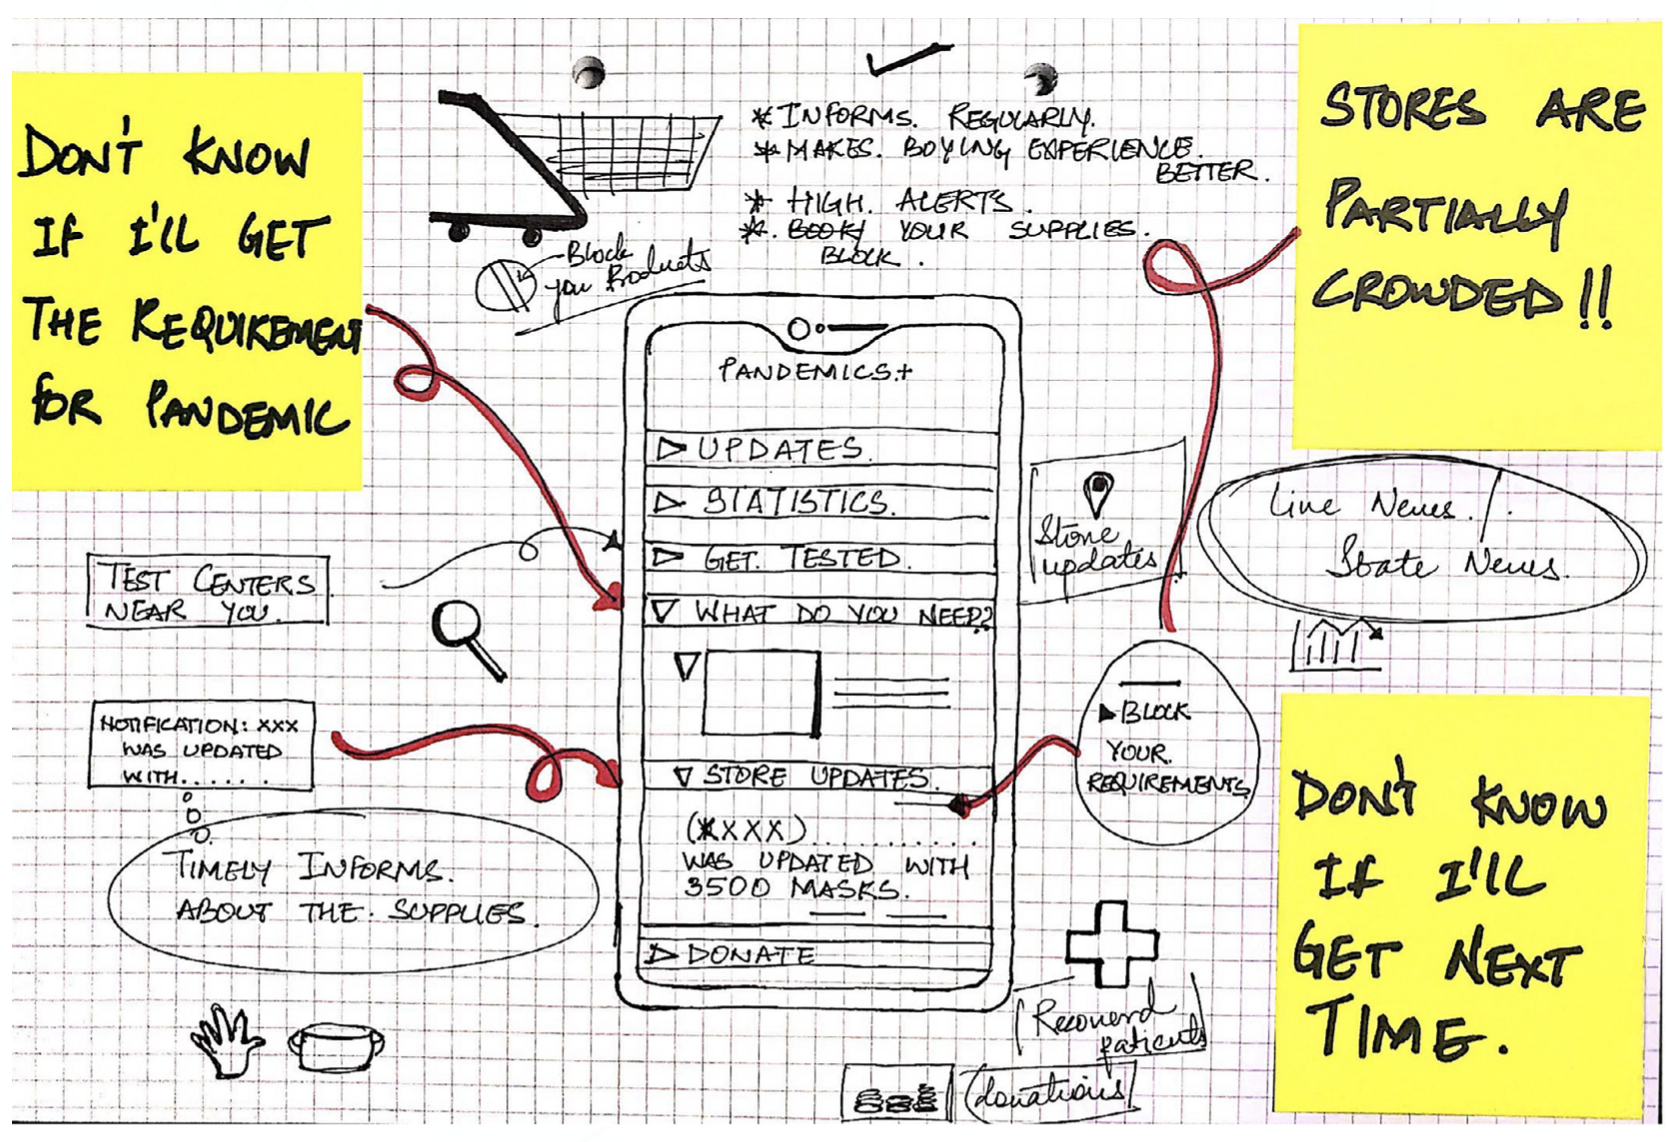 DON'T KNOW
IF I'LL GET
THE REQUIREMENT
FOR PANDEMIC
* INFORMS. REGULARLY.
* MAKES. BUYING EXPERIENCE.
BETTER.
* HIGH. ALERTS.
* BOOK YOUR SUPPLIES.
BLOCK.
Block
your Products
STORES ARE
PARTIALLY
CROWDED!!
PANDEMICS.+
UPDATES.
STATISTICS.
GET. TESTED.
WHAT DO YOU NEED?
STORE UPDATES.
(XXXX)..........
WAS UPDATED WITH
3500 MASKS.
DONATE
TEST CENTERS
NEAR YOU.
NOTIFICATION: XXX
WAS UPDATED
WITH......
TIMELY INFORMS.
ABOUT THE. SUPPLIES.
Store
updates
Live News./.
State News.
BLOCK
YOUR.
REQUIREMENTS
DON'T KNOW
IF I'LL
GET NEXT
TIME.
Recoverd
patients
donations